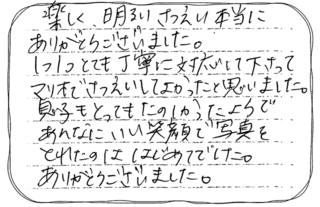 楽しく、明るいさつえい本当に
ありがとうございました。
1つ1つとても丁寧に対応して下さって
マリオでさつえいしてよかったと思いました。
息子もとってもたのしかったようで
あんなにいい笑顔で写真を
とれたのははじめてでした。
ありがとうございました。